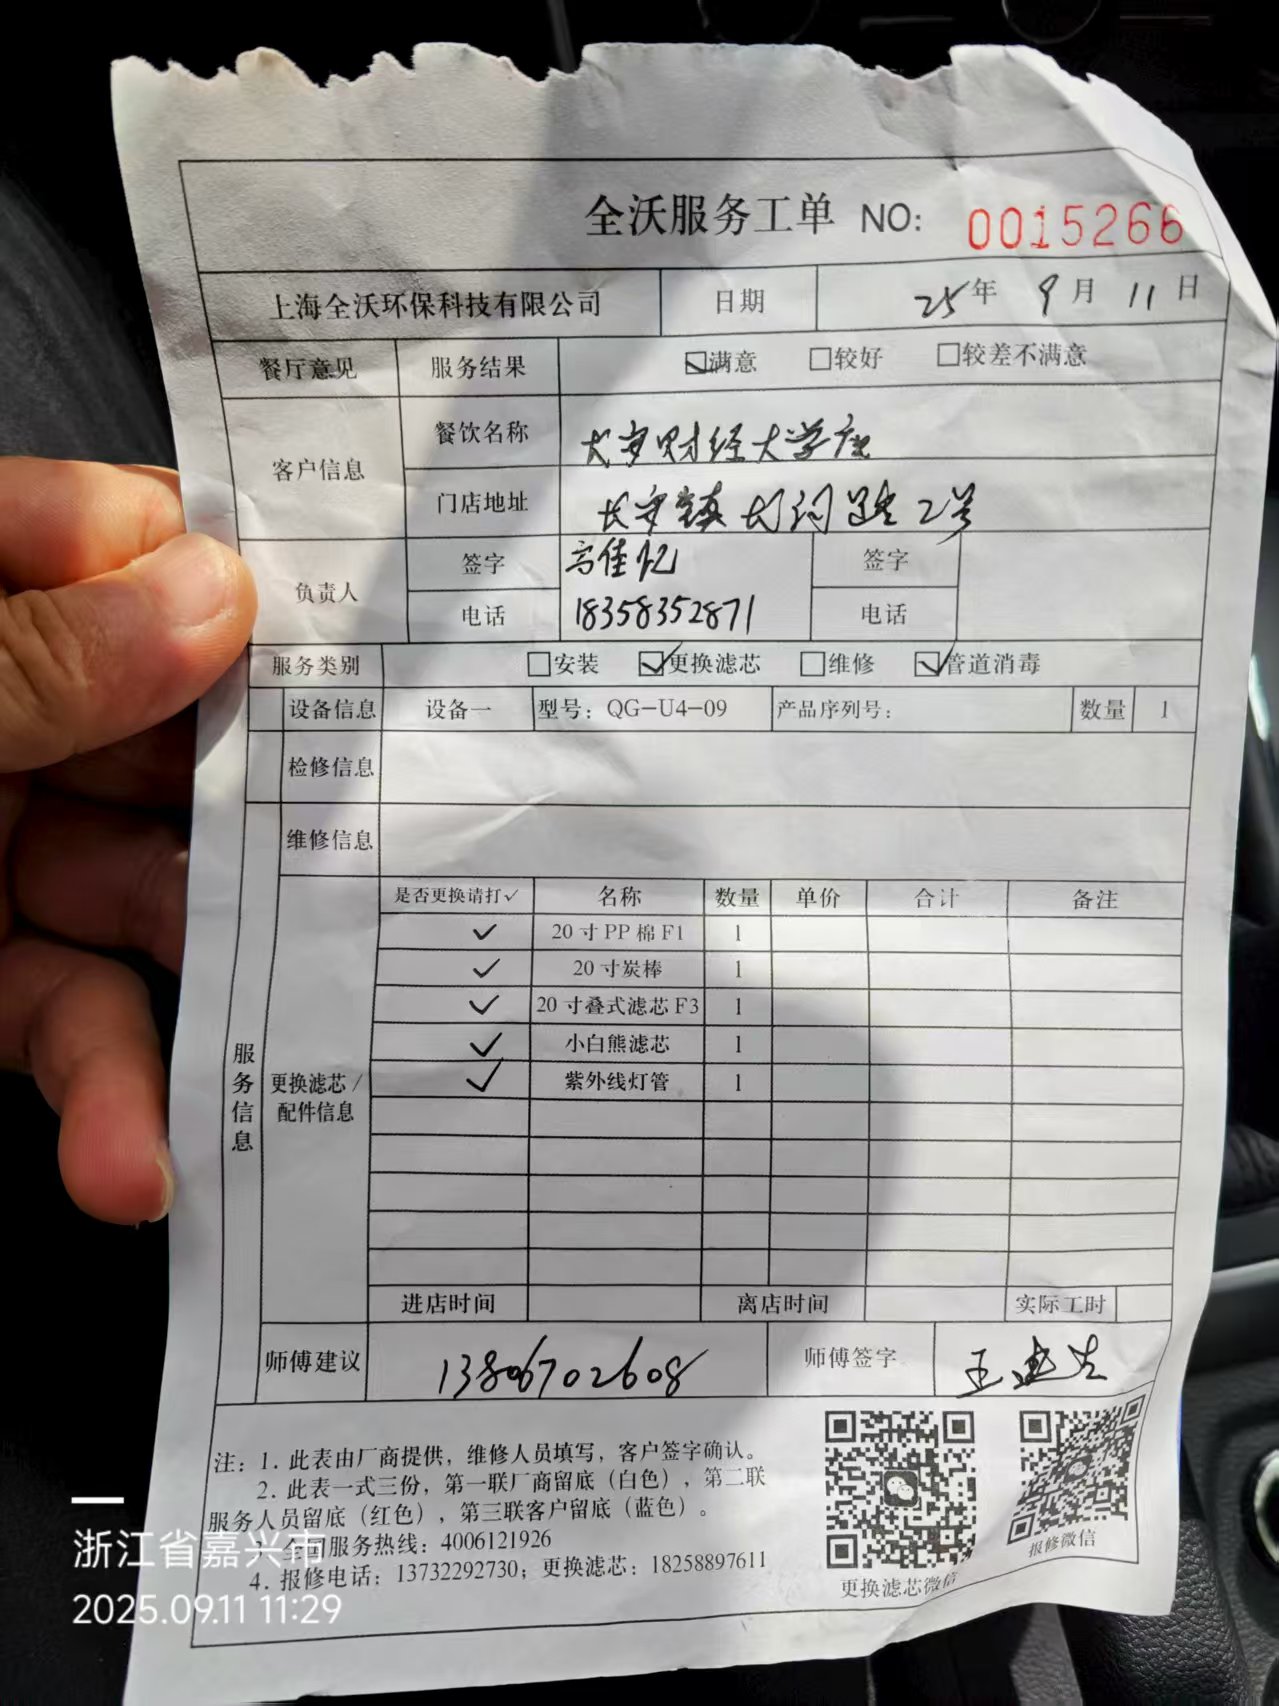 全沃服务工单 NO: 0015266
上海全沃环保科技有限公司 日期 25年 9月 11日
餐厅意见 服务结果 ☑满意 □较好 □较差不满意
客户信息 餐饮名称 财经大学店
门店地址 长安镇 路2号
负责人 签字 高佳忆 签字
电话 18358352871 电话
服务类别 □安装 ☑更换滤芯 □维修 ☑管道消毒
设备信息 设备一 型号：QG-U4-09 产品序列号： 数量 1
检修信息
维修信息
服务信息
更换滤芯/配件信息
是否更换请打✓ 名称 数量 单价 合计 备注
✓ 20寸PP棉F1 1
✓ 20寸炭棒 1
✓ 20寸叠式滤芯F3 1
✓ 小白熊滤芯 1
✓ 紫外线灯管 1
进店时间 离店时间 实际工时
师傅建议 13806702608 师傅签字 王
注：1. 此表由厂商提供，维修人员填写，客户签字确认。
2. 此表一式三份，第一联厂商留底（白色），第二联
服务人员留底（红色），第三联客户留底（蓝色）。
3. 全国服务热线：4006121926
4. 报修电话：13732292730；更换滤芯：18258897611
更换滤芯微信
报修微信
浙江省嘉兴市
2025.09.11 11:29